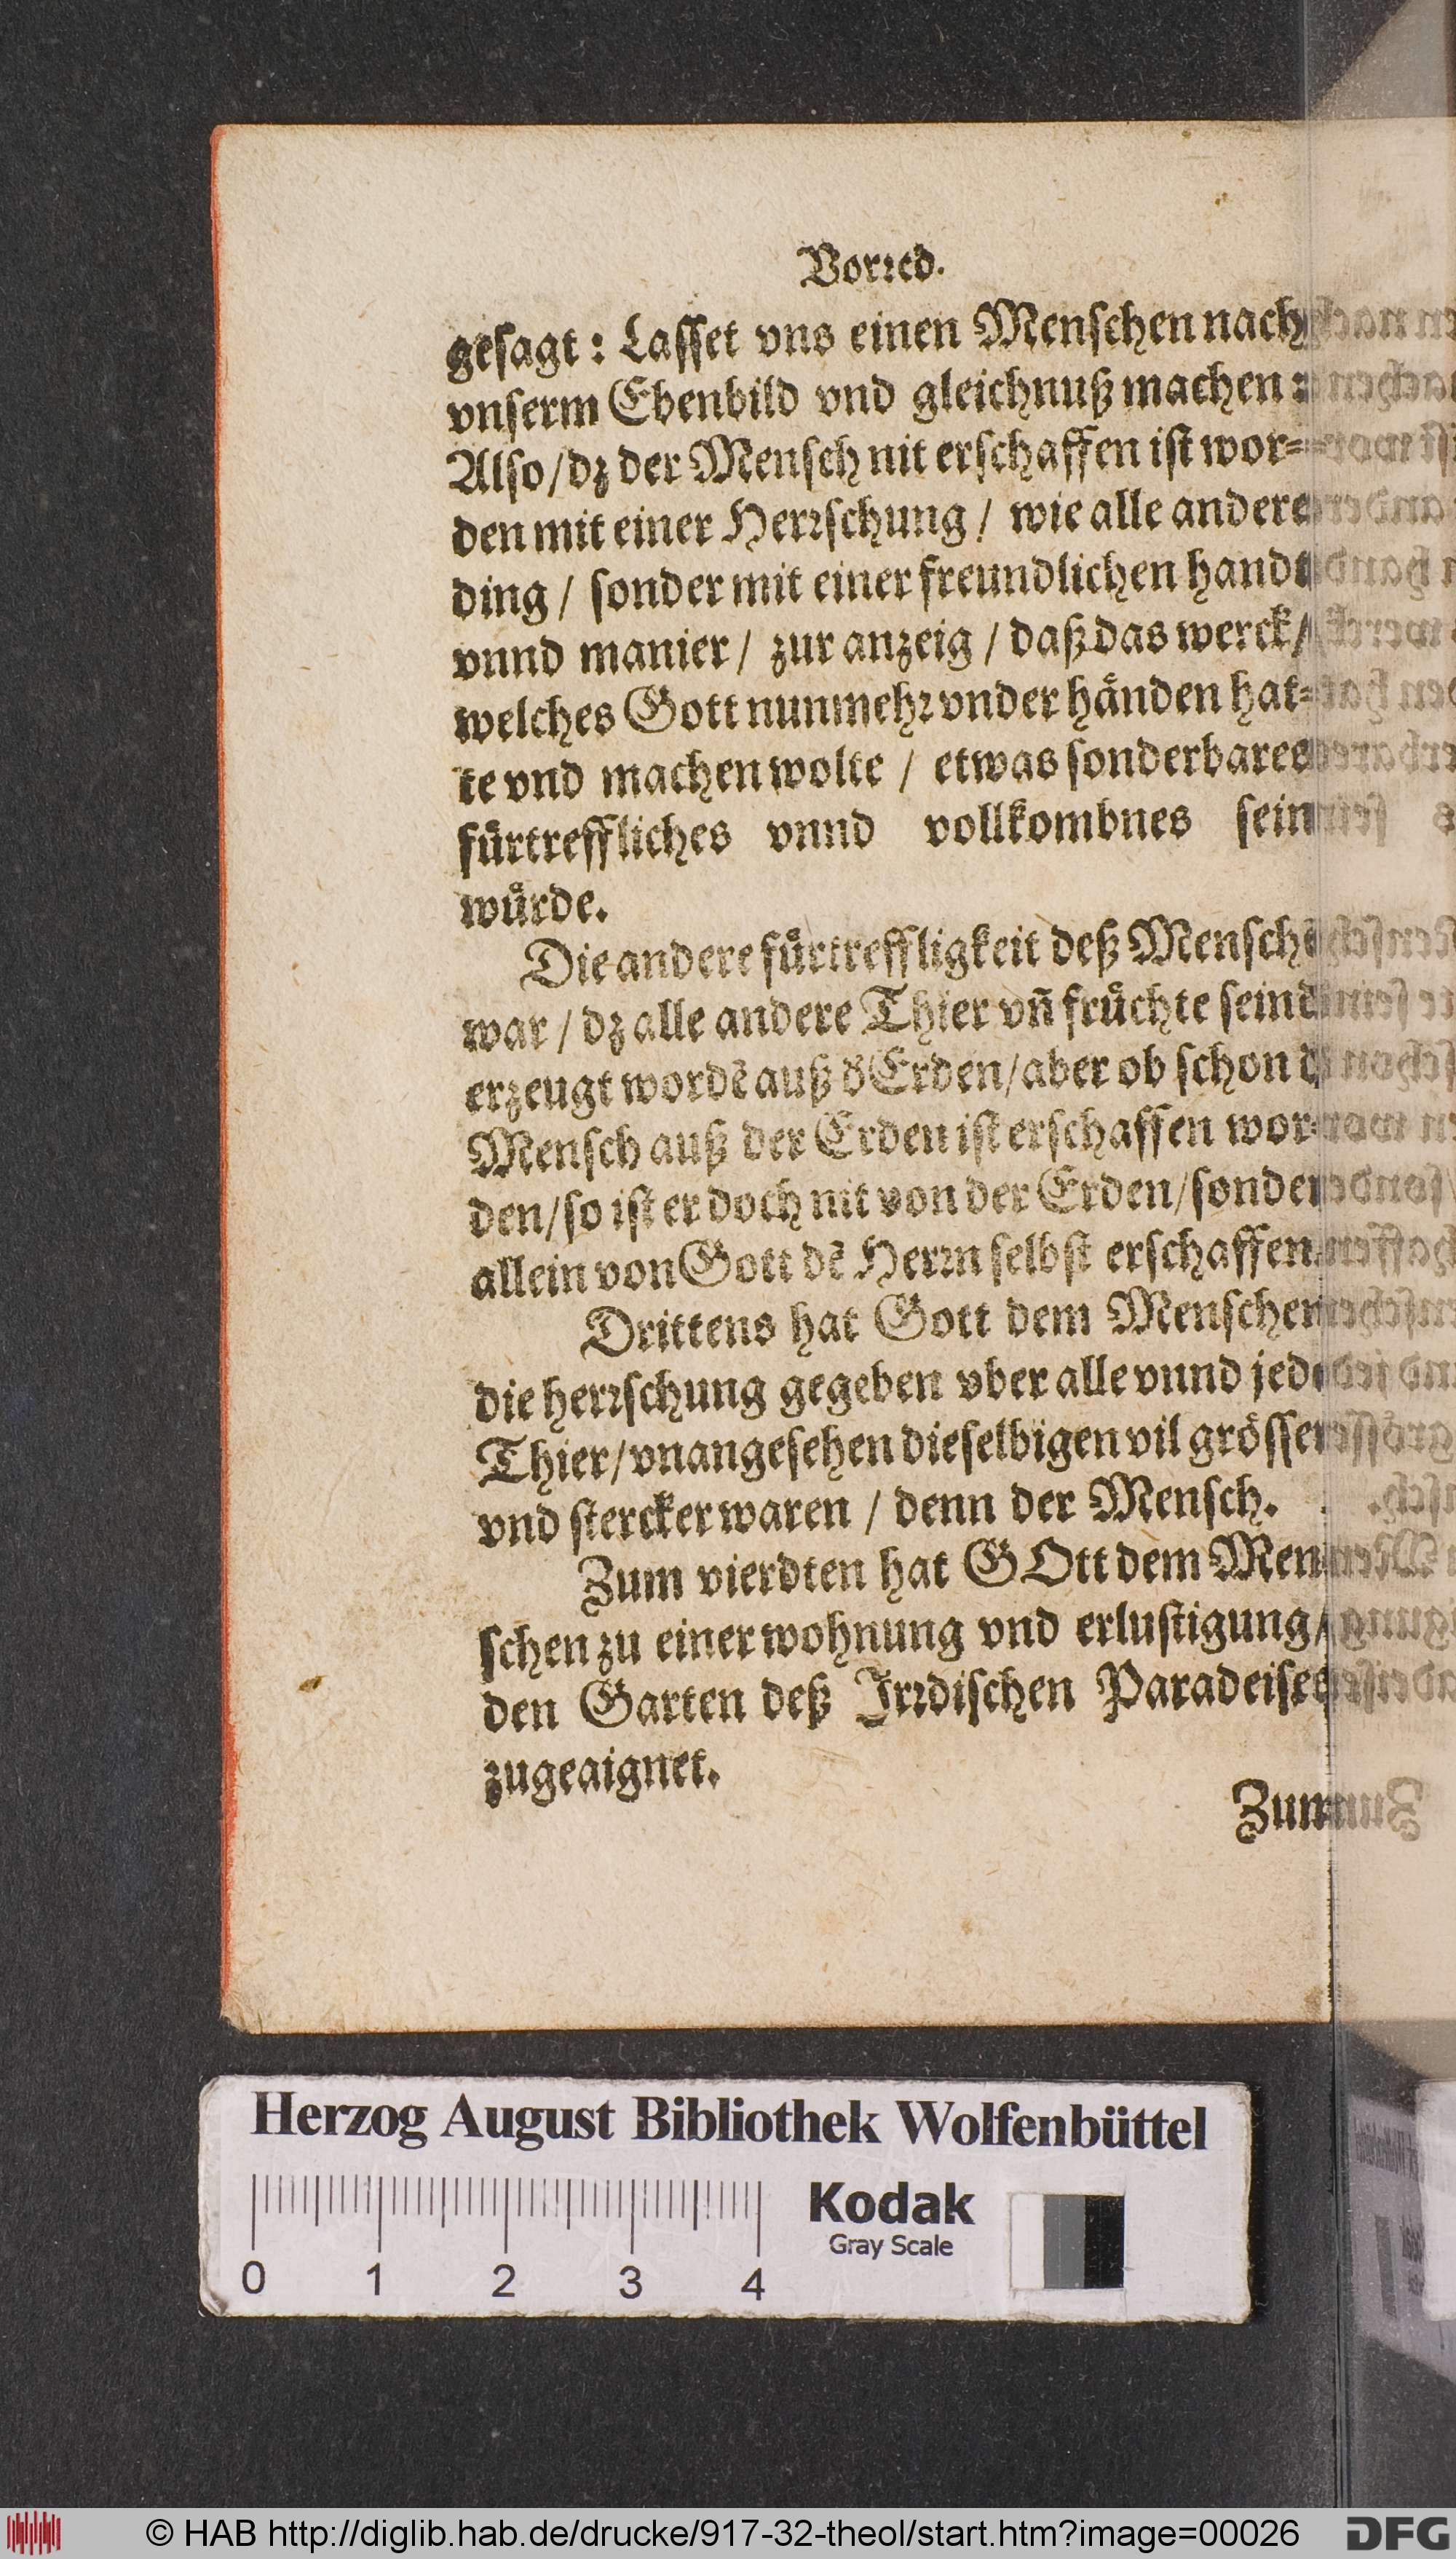 Vorꝛed.
gesagt: Lasset vns einen Menschen nach
vnserm Ebenbild vnd gleichnuß machen:
Also/dz der Mensch nit erschaffen ist wor-
den mit einer Herꝛschung / wie alle andere
ding / sonder mit einer freundlichen hand
vnnd manier / zur anzeig / daß das werck/
welches Gott nunmehꝛ vnder hånden hat-
te vnd machen wolte / etwas sonderbares
fůrtreffliches vnnd vollkombnes sein
wůrde.
Die andere fůrtreffligkeit deß Menschē
war / dz alle andere Thier vñ frůchte seind
erzeugt wordē auß d' Erden/aber ob schon d'
Mensch auß der Erden ist erschaffen wor-
den/so ist er doch nit von der Erden/sonder
allein von Gott dē Herꝛn selbst erschaffen.
Drittens hat Gott dem Menschen
die herꝛschung gegeben vber alle vnnd jede
Thier/vnangesehen dieselbigen vil grösser
vnd stercker waren / denn der Mensch.
Zum vierdten hat GOtt dem Men
schen zu einer wohnung vnd erlustigung/
den Garten deß Irꝛdischen Paradeises
zugeaignet.
Zum
Herzog August Bibliothek Wolfenbüttel
Kodak
Gray Scale
0 1 2 3 4
© HAB http://diglib.hab.de/drucke/917-32-theol/start.htm?image=00026
DFG